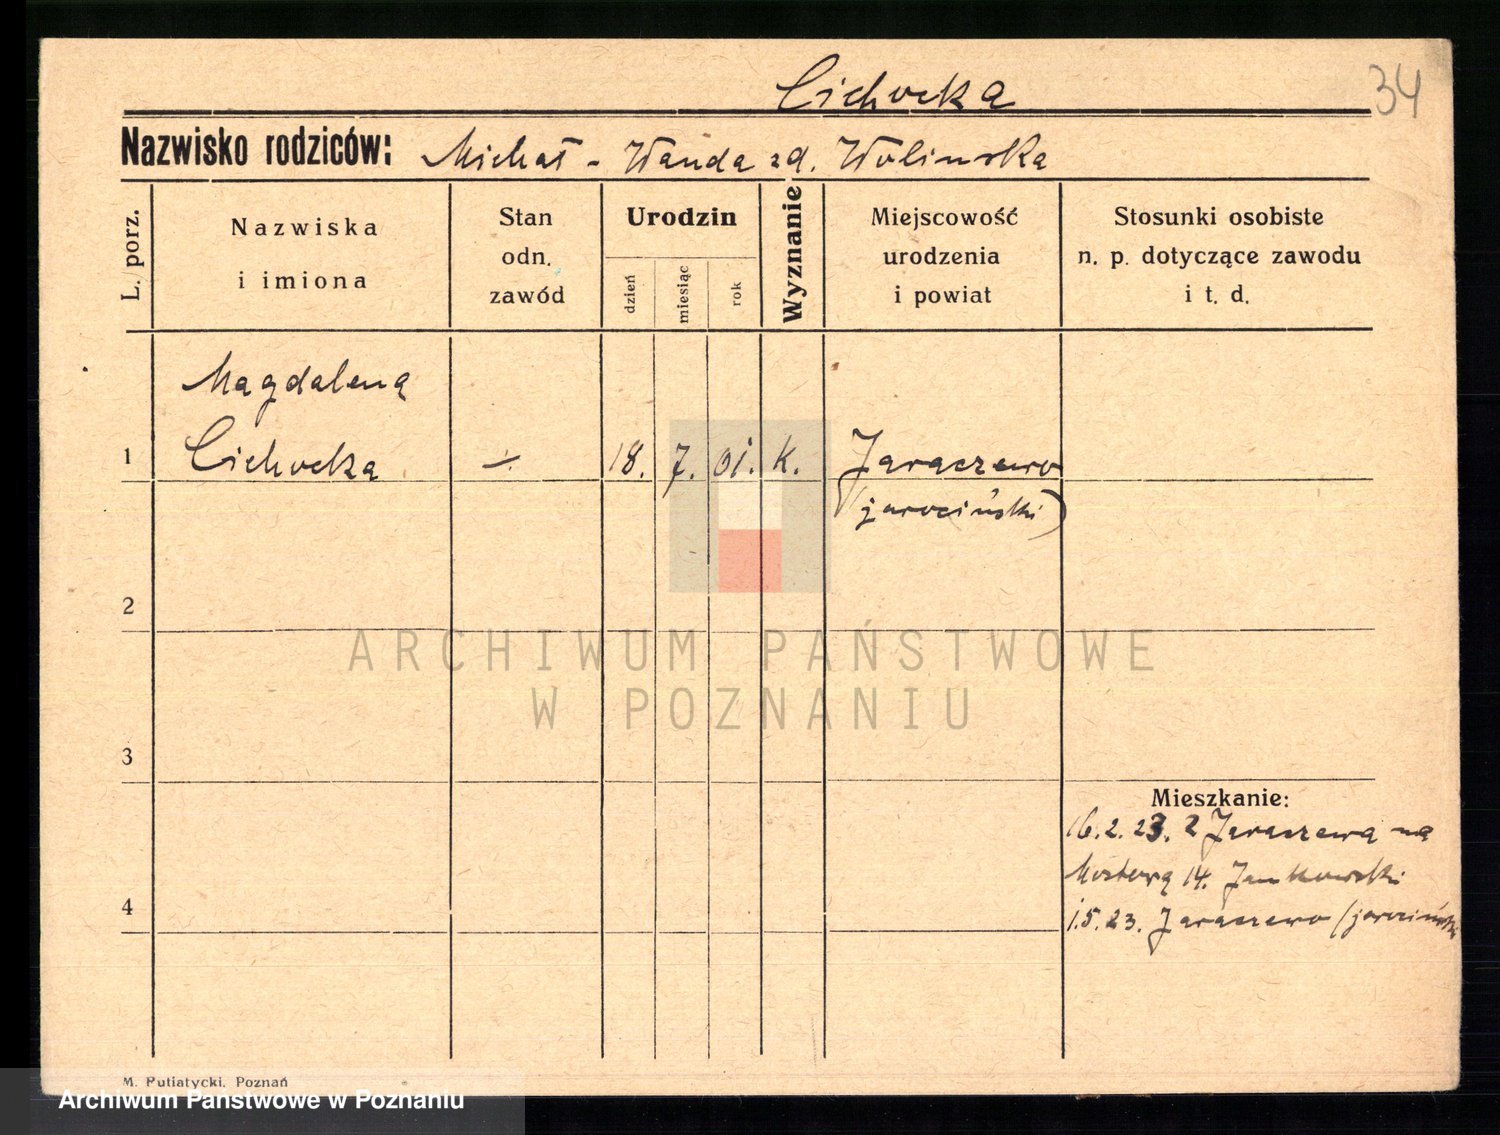 Cichocka 34
Nazwisko rodziców: Michał - Wanda zd. Wolinska
L. porz.
Nazwiska
i imiona
Stan
odn.
zawód
Urodzin
dzień
miesiąc
rok
Wyznanie
Miejscowość
urodzenia
i powiat
Stosunki osobiste
n. p. dotyczące zawodu
i t. d.
Magdalena
1 Cichocka -/. 18. 7. 01. k. Jaraczewo
(jarociński)
2
ARCHIWUM PAŃSTWOWE
W POZNANIU
3
Mieszkanie:
16.2.23. z Jaraczewa na
Mostową 14. Jankowski
4
1.5.23. Jaraczewo (jarociński
M. Putiatycki, Poznań
Archiwum Państwowe w Poznaniu